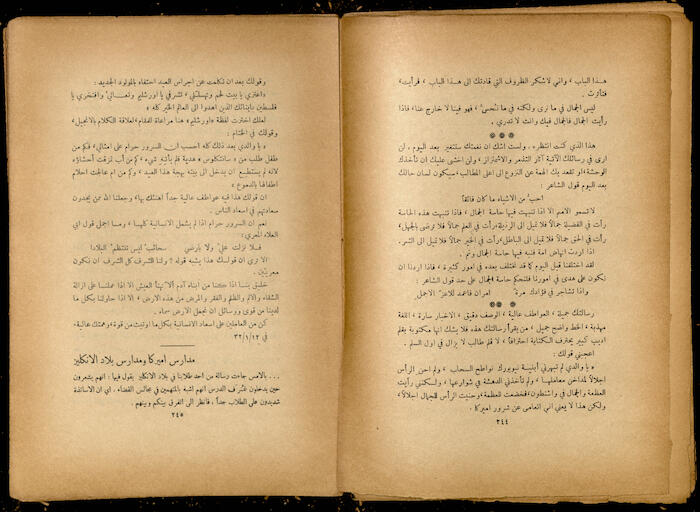 هذا الباب ، واني لاشكر الظروف التي قادتك الى هذا الباب ، فرأيت
فتأثرت .
ليس الجمال في ما نرى ولكنه في ما نحس ، فهو فينا لا خارج عنا ، فاذا
رأيت الجمال فالجمال فيك وانت لا تدري .
هذا الذي كنت انتظره . ولست اشك ان نغمتك ستتغير بعد اليوم . لن
ارى في رسائلك الآتية آثار التذمر والاشمئزاز ، ولن اخشى عليك ان تأخذك
الوحشة او تقعد بك الهمة عن النزوع الى اعلى المطالب ، سيكون لسان حالك
بعد اليوم قول الشاعر :
احب من الاشياء ما كان فائقاً
لا تسمو الامم الا اذا تنبهت فيها حاسة الجمال ، فاذا تنبهت هذه الحاسة
رأت في الفضيلة جمالاً فلا تميل الى الرذيلة ، رأت في العلم جمالاً فلا ترضى بالجهل ،
رأت في الحق جمالاً فلا تميل الى الباطل ، رأت في الخير جمالاً فلا تميل الى الشر .
اذا اردت انهاض امة فنبه فيها حاسة الجمال ونم .
لقد اختلفنا قبل اليوم كما قد نختلف بعده في امور كثيرة ، فاذا اردنا ان
نكون على هدى في امورنا فلنحكم حاسة الجمال على حد قول الشاعر :
واذا تشاجر في فؤادك مرة امران فاعمد للاعز الاجمل
رسالتك جميلة ، العواطف عالية ، الوصف دقيق ، الاخبار سارة ، اللغة
مهذبة ، الخط واضح جميل ، من يقرأ رسالتك هذه فلا يشك انها مكتوبة بقلم
اديب كبير يحترف الكتابة احترافاً ، لا قلم طالب لا يزال في اول السلم .
اعجبني قولك :
« يا والدي لم تبهرني أبنية نيويورك نواطح السحاب ، ولم احن الرأس
اجلالاً لمداخن معاملها ، ولم تأخذني الدهشة في شوارعها ، ولكنني رأيت
العظمة والجمال في واشنطون ، فخضعت للعظمة ، وحنيت الرأس للجمال اجلالاً ،
ولكن هذا لا يعني اني اتعامى عن شرور اميركا .
٢٤٤
وقولك بعد ان تكلمت عن اجراس العيد احتفاء بالمولود الجديد :
« اعتزي يا بيت لحم وتهللي ، تشرفي يا اورشليم وتعالي ، وافتخري يا
فلسطين بابنائك الذين اهدوا الى العالم الخير كله »
لعلك اخترت لفظة «اورشليم» هنا مراعاة للمقام ، لعلاقة الكلام بالانجيل ،
وقولك في الختام :
« يا والدي بعد ذلك كله احسب ان السرور حرام على امثالي ، فكم من
طفل طلب من «سانتكلوس» هدية فلم يأته شيء ، كم من أب تمزقت أحشاؤه
لانه لم يستطيع ان يدخل الى بيته بهجة هذا العيد ، وكم من ام عاجلت احلام
اطفالها بالدموع »
ان قولك هذا فيه عواطف عالية جداً أهنئك بها ، وجعلنا الله ممن يجدون
سعادتهم في اسعاد الناس .
نعم ان السرور حرام اذا لم يشمل الانسانية كلها ، وما اجمل قول ابي
العلاء المعري :
فلا نزلت علي ولا بارضي سحائب ليس تنتظم البلادا
الا ترى ان قولك هذا يشبه قوله ؟ ولنا الشرف كل الشرف ان نكون
معريين .
خليق بنا اذا كنا من ابناء آدم ألا نهنأ العيش الا اذا عملنا على ازالة
الشقاء والالم والظلم والفقر والمرض من هذه الارض ، الا اذا حاولنا بكل ما
لدينا من قوى ووسائل ان نجعل الارض سماء .
كن من العاملين على اسعاد الانسانية بكل ما اوتيت من قوة ، وهمتك عالية .
٣٢/١/١٢
مدارس اميركا ومدارس بلاد الانكليز
... بالامس جاءت رسالة من احد طلابنا في بلاد الانكليز يقول فيها : انهم يشعرون
حين يدخلون غرف الدرس انهم اشبه بالمتهمين في مجالس القضاء . اي ان الاساتذة
شديدون على الطلاب جداً ، فانظر الى الفرق بينكم وبينهم .
٢٤٥